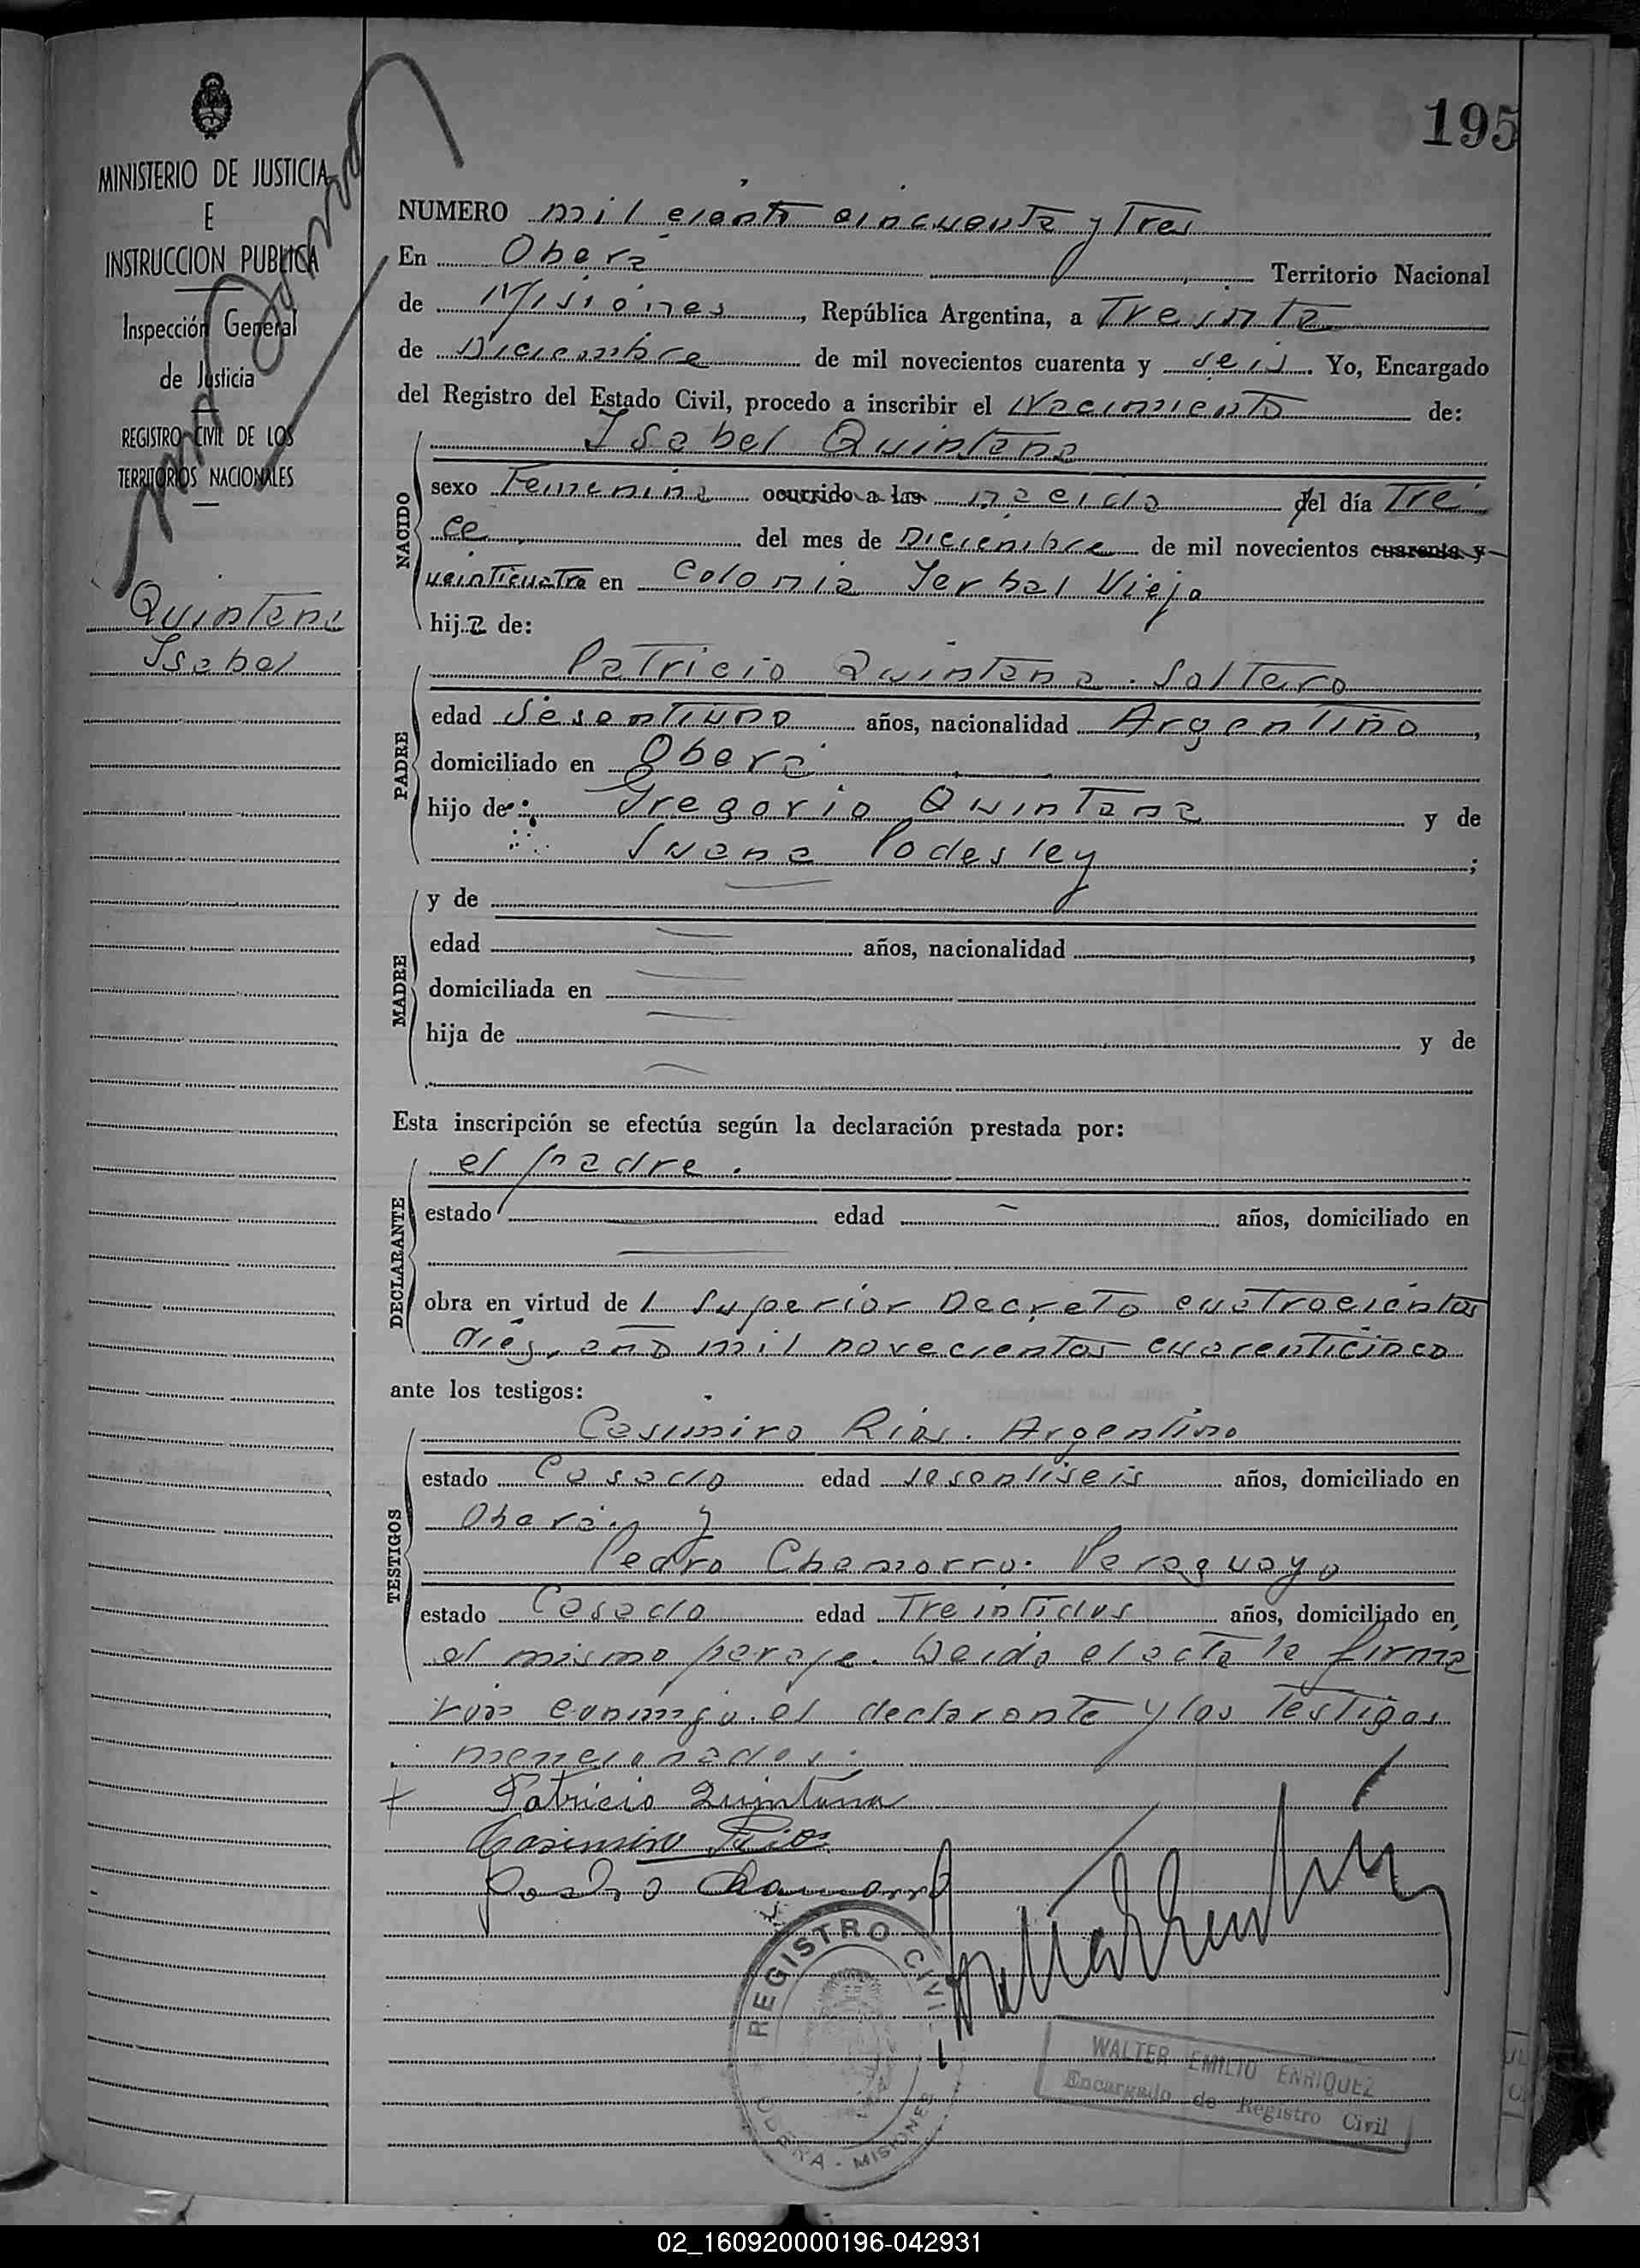 195
MINISTERIO DE JUSTICIA
E
INSTRUCCION PUBLICA
Inspección General
de Justicia
REGISTRO CIVIL DE LOS
TERRITORIOS NACIONALES
Quintana
Isabel
NUMERO mil ciento cincuenta y Tres
En Oberá Territorio Nacional
de Misiones, República Argentina, a Treinta
de Diciembre de mil novecientos cuarenta y seis. Yo, Encargado
del Registro del Estado Civil, procedo a inscribir el Nacimiento de:
Isabel Quintana
NACIDO
sexo Femenino ocurrido a las nacida del día Tre
ce del mes de Diciembre de mil novecientos cuarenta y
veinticuatro en Colonia Yerbal Viejo
hija de:
PADRE
Patricio Quintana. Soltero
edad Sesentiuno años, nacionalidad Argentino,
domiciliado en Oberá
hijo de: Gregorio Quintana y de
Juana Podesley;
MADRE
y de
edad años, nacionalidad ,
domiciliada en
hija de y de
Esta inscripción se efectúa según la declaración prestada por:
DECLARANTE
el padre.
estado edad años, domiciliado en
obra en virtud de l Superior Decreto cuatrocientos
diez, año mil novecientos cuarenticinco
ante los testigos:
TESTIGOS
Casimiro Rios. Argentino
estado Casado edad sesentiseis años, domiciliado en
Oberá. y
Pedro Chamorro. Paraguayo
estado Casado edad Treintidos años, domiciliado en
el mismo paraje. Leida el acta la firma
ron conmigo. el declarante y los Testigos
mencionados.
Patricio Quintana
Casimiro Rios
Pedro Chamorro
REGISTRO CIVIL
OBERA - MISIONES
WALTER EMILIO ENRIQUEZ
Encargado de Registro Civil
02_160920000196-042931